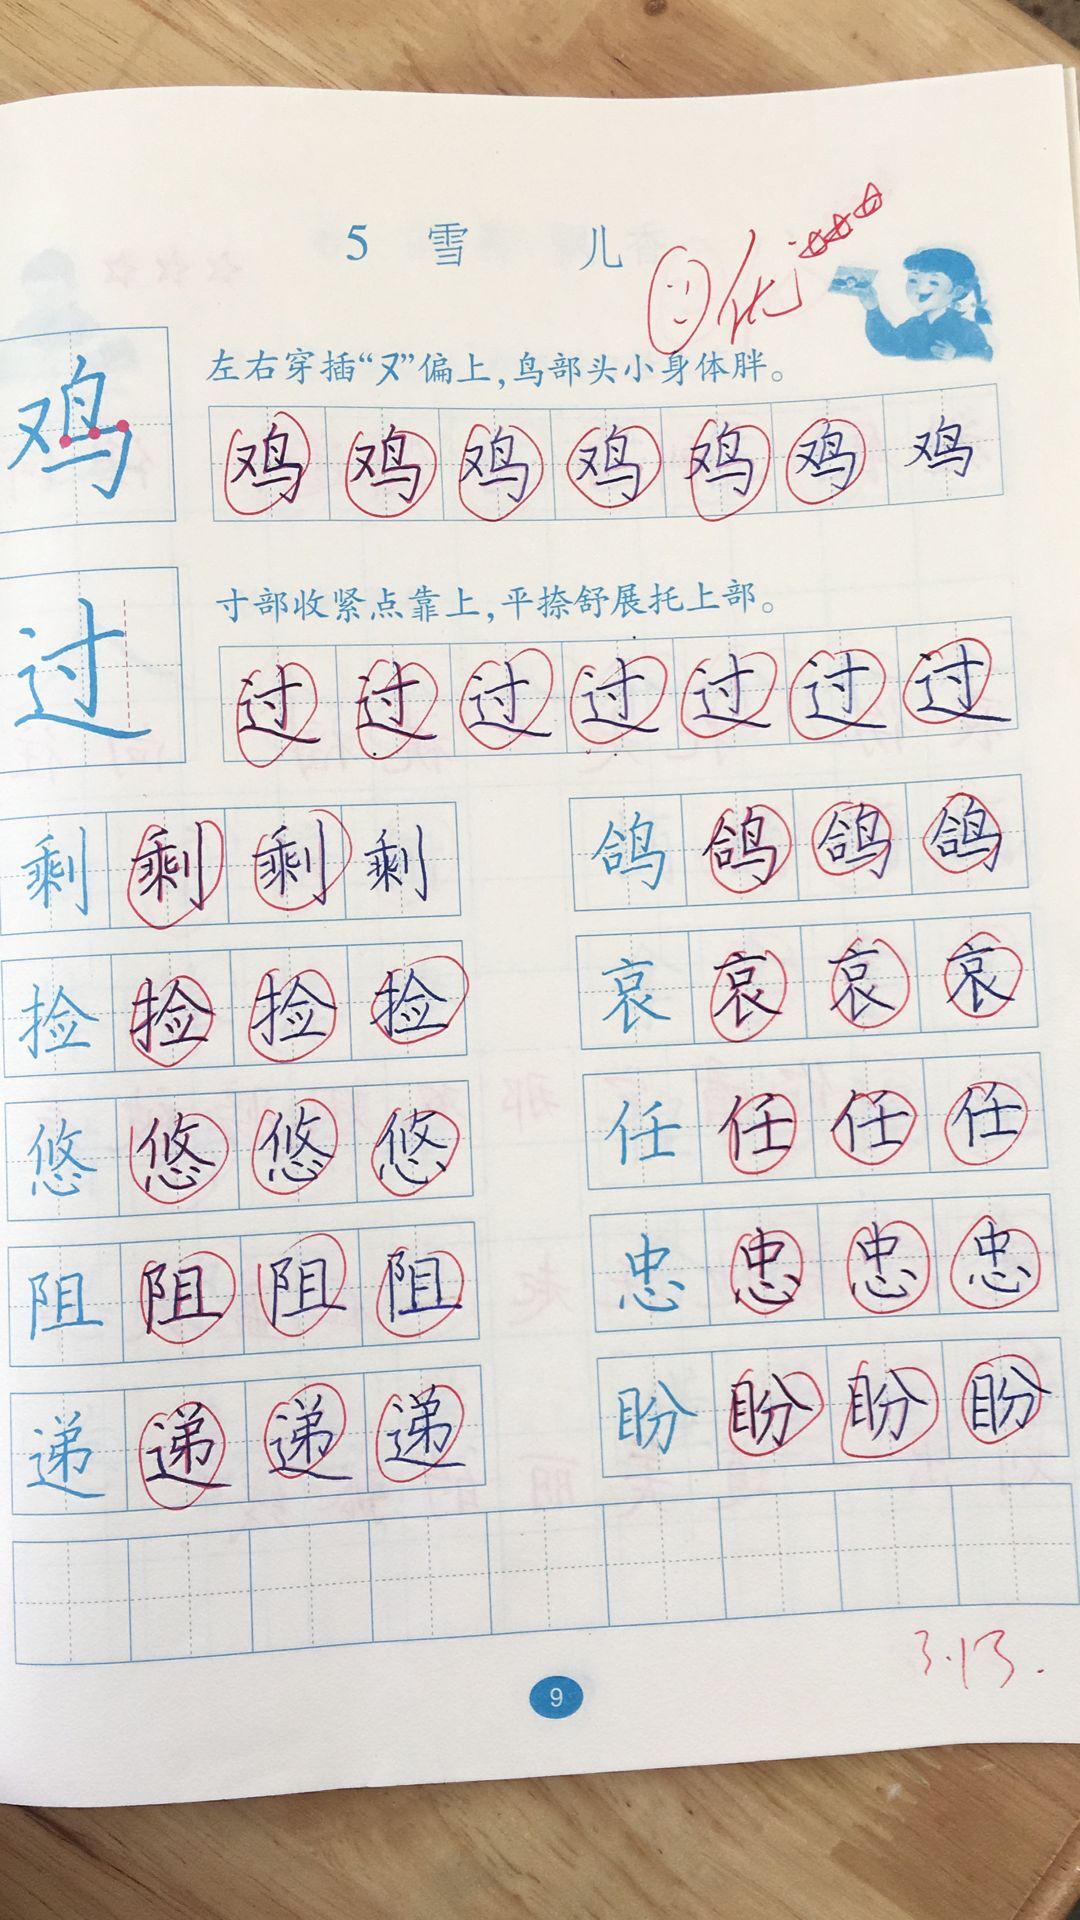 5 雪 儿
优
左右穿插“又”偏上,鸟部头小身体胖。
鸡 鸡 鸡 鸡 鸡 鸡 鸡 鸡
寸部收紧点靠上,平捺舒展托上部。
过 过 过 过 过 过 过 过
剩 剩 剩 剩 鸽 鸽 鸽 鸽
捡 捡 捡 捡 哀 哀 哀 哀
悠 悠 悠 悠 任 任 任 任
阻 阻 阻 阻 忠 忠 忠 忠
递 递 递 递 盼 盼 盼 盼
3.13.
9